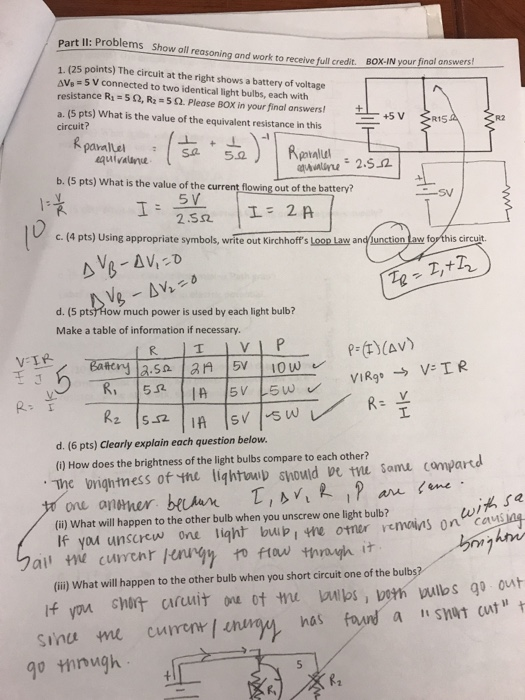 Part II: Problems Show all reasoning and work to receive full credit. BOX-IN your final answers!
1. (25 points) The circuit at the right shows a battery of voltage
ΔVB = 5 V connected to two identical light bulbs, each with
resistance R1 = 5 Ω, R2 = 5 Ω. Please BOX in your final answers!
a. (5 pts) What is the value of the equivalent resistance in this
circuit?
+5 V
R1 5 Ω
R2
R parallel equivalence (1/5Ω + 1/5Ω)^-1
Rparallel equivalence = 2.5 Ω
5V
b. (5 pts) What is the value of the current flowing out of the battery?
I = V/R
I = 5V/2.5Ω
I = 2 A
10
c. (4 pts) Using appropriate symbols, write out Kirchhoff's Loop Law and Junction Law for this circuit.
ΔVB - ΔV1 = 0
ΔVB - ΔV2 = 0
IB = I1 + I2
d. (5 pts) How much power is used by each light bulb?
Make a table of information if necessary.
R I V P
Battery 2.5Ω 2A 5V 10W
R1 5Ω 1A 5V 5W
R2 5Ω 1A 5V 5W
V=IR
R = V/I
5
P=(I)(ΔV)
VIRgo → V= I R
R = V/I
d. (6 pts) Clearly explain each question below.
(i) How does the brightness of the light bulbs compare to each other?
· The brightness of the lightbulb should be the same compared
to one another because I, ΔV, R, P are same.
(ii) What will happen to the other bulb when you unscrew one light bulb?
If you unscrew one light bulb, the other remains on with sa
causing
all the current/energy to flow through it.
5
(iii) What will happen to the other bulb when you short circuit one of the bulbs?
If you short circuit one of the bulbs, both bulbs go out
since the current/energy has found a "short cut" t
go through.
5
R1
R2